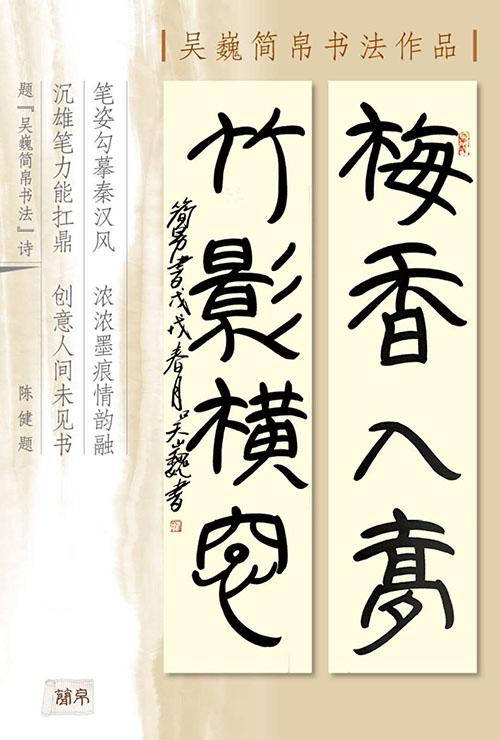 吴巍简帛书法作品
梅香入夢
竹影橫窓
簡帛書戊戌春月吴巍書
笔姿勾摹秦汉风 浓浓墨痕情韵融
沉雄笔力能扛鼎 创意人间未见书
题『吴巍简帛书法』诗 陈健题
簡帛